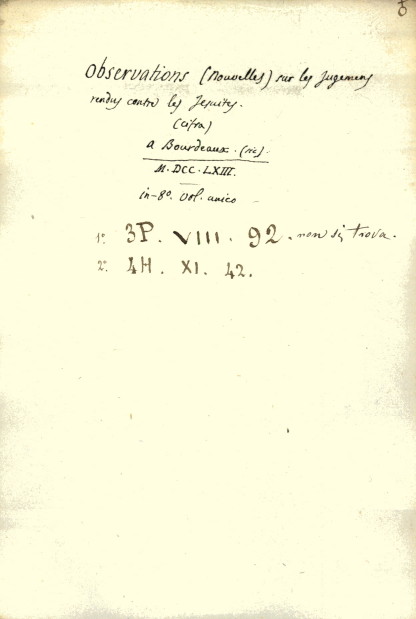 Observations (nouvelles) sur les jugemens
rendus contre les Jesuites.
(cifra)
a Bourdeaux. (sic).
M.DCC.LXIII.
in-8º. vol. unico
1º. 3P. VIII. 92. non si trova.
2º. 4H. XI. 42.